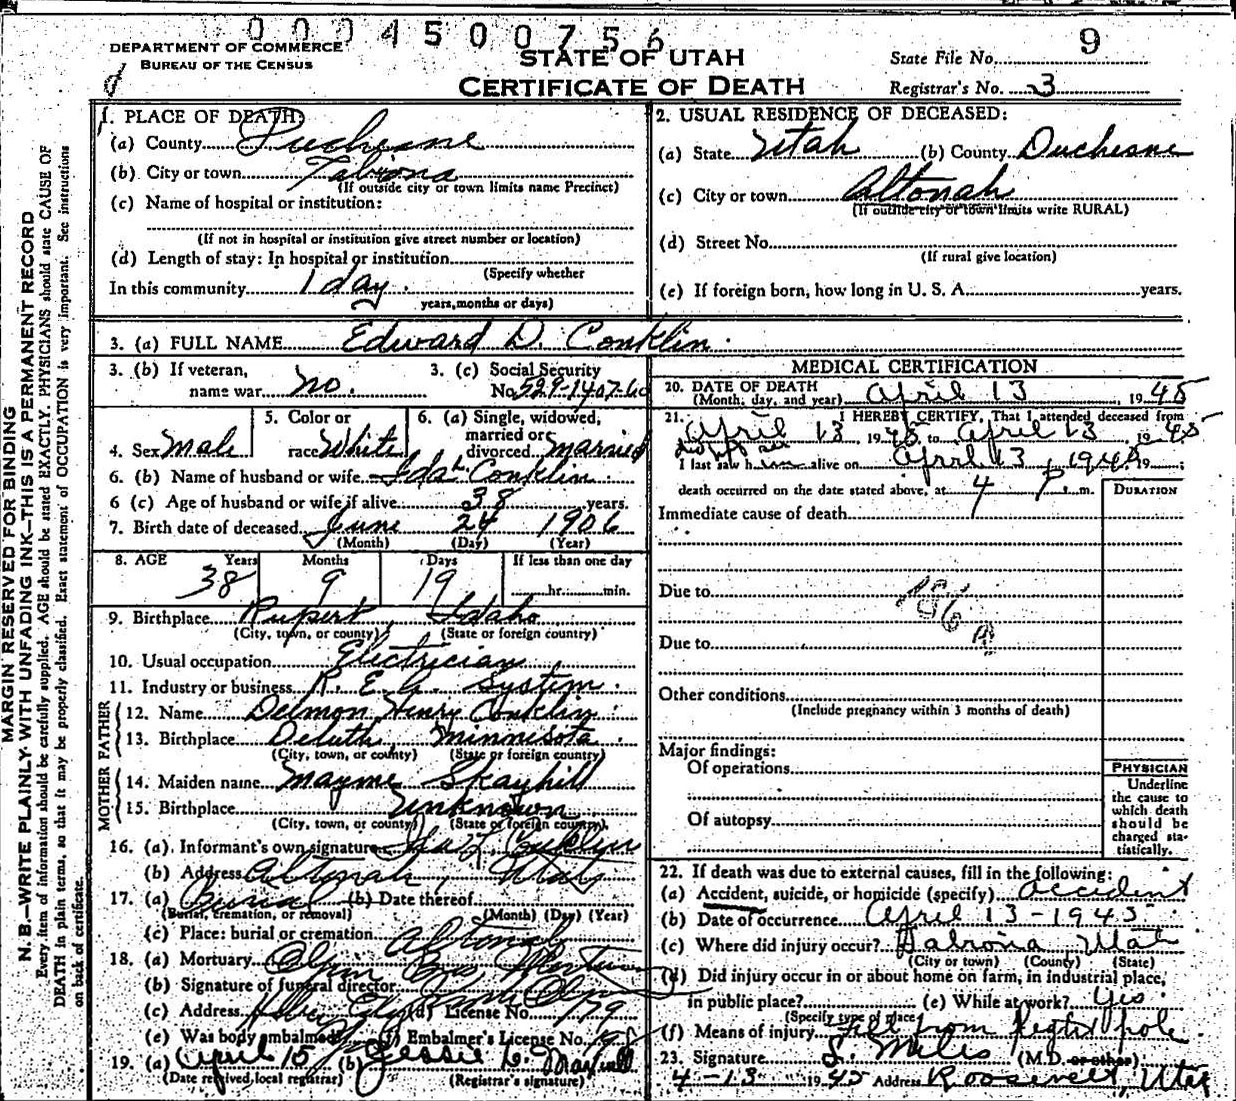 0 0 0 4 5 0 0 7 5 6
9
DEPARTMENT OF COMMERCE
BUREAU OF THE CENSUS
STATE OF UTAH
CERTIFICATE OF DEATH
State File No.
Registrar's No. 23
MARGIN RESERVED FOR BINDING
N. B.—WRITE PLAINLY WITH UNFADING INK—THIS IS A PERMANENT RECORD
Every item of information should be carefully supplied. AGE should be stated EXACTLY. PHYSICIANS should state CAUSE OF
DEATH in plain terms, so that it may be properly classified. Exact statement of OCCUPATION is very important. See instructions
on back of certificate.
1. PLACE OF DEATH:
(a) County Duchesne
(b) City or town Tabiona
(If outside city or town limits name Precinct)
(c) Name of hospital or institution:
(If not in hospital or institution give street number or location)
(d) Length of stay: In hospital or institution
(Specify whether
In this community 1 day.
years, months or days)
2. USUAL RESIDENCE OF DECEASED:
(a) State Utah (b) County Duchesne
(c) City or town Altonah
(If outside city or town limits write RURAL)
(d) Street No.
(If rural give location)
(e) If foreign born, how long in U. S. A. years.
3. (a) FULL NAME Edward D. Conklin.
3. (b) If veteran, name war no. 3. (c) Social Security No. 529-1407-60
4. Sex Male 5. Color or race White 6. (a) Single, widowed, married or divorced married
6. (b) Name of husband or wife Ida L. Conklin.
6 (c) Age of husband or wife if alive 38 years.
7. Birth date of deceased June 24 1906
(Month) (Day) (Year)
8. AGE Years Months Days If less than one day
38 9 19 hr. min.
9. Birthplace Rupert, Idaho
(City, town, or county) (State or foreign country)
10. Usual occupation Electrician
11. Industry or business R. E. A. System.
FATHER
12. Name Delmon Henry Conklin.
13. Birthplace Deluth, Minnesota.
(City, town, or county) (State or foreign country)
MOTHER
14. Maiden name Mayme Skayhill
15. Birthplace Unknown
(City, town, or county) (State or foreign country)
16. (a). Informant's own signature Ida L.
(b) Address Altonah, Utah
17. (a) Burial (b) Date thereof
(Burial, cremation, or removal) (Month) (Day) (Year)
(c) Place: burial or cremation Altonah
18. (a) Mortuary Olpin Bros Mortuary
(b) Signature of funeral director
(c) Address (d) License No. 179
(e) Was body embalmed Embalmer's License No.
19. (a) April 15 (b) Jessie L.
(Date received, local registrar) (Registrar's signature)
MEDICAL CERTIFICATION
20. DATE OF DEATH
(Month, day, and year) April 13, 1945
21. I HEREBY CERTIFY, That I attended deceased from
April 13, 1945 to April 13 1945
did not see
I last saw him alive on April 13, 1945 19
death occurred on the date stated above, at 4 P. m.
DURATION
Immediate cause of death
Due to
186 a
Due to
Other conditions
(Include pregnancy within 3 months of death)
Major findings:
Of operations
Of autopsy
PHYSICIAN
Underline
the cause to
which death
should be
charged sta-
tistically.
22. If death was due to external causes, fill in the following:
(a) Accident, suicide, or homicide (specify) accident
(b) Date of occurrence April 13-1945
(c) Where did injury occur? Tabiona Utah
(City or town) (County) (State)
(d) Did injury occur in or about home on farm, in industrial place,
in public place? (e) While at work? yes
(Specify type of place)
(f) Means of injury Fell from light pole
23. Signature S. Miles (M.D. or other)
4-13 1945 Address Roosevelt, Utah